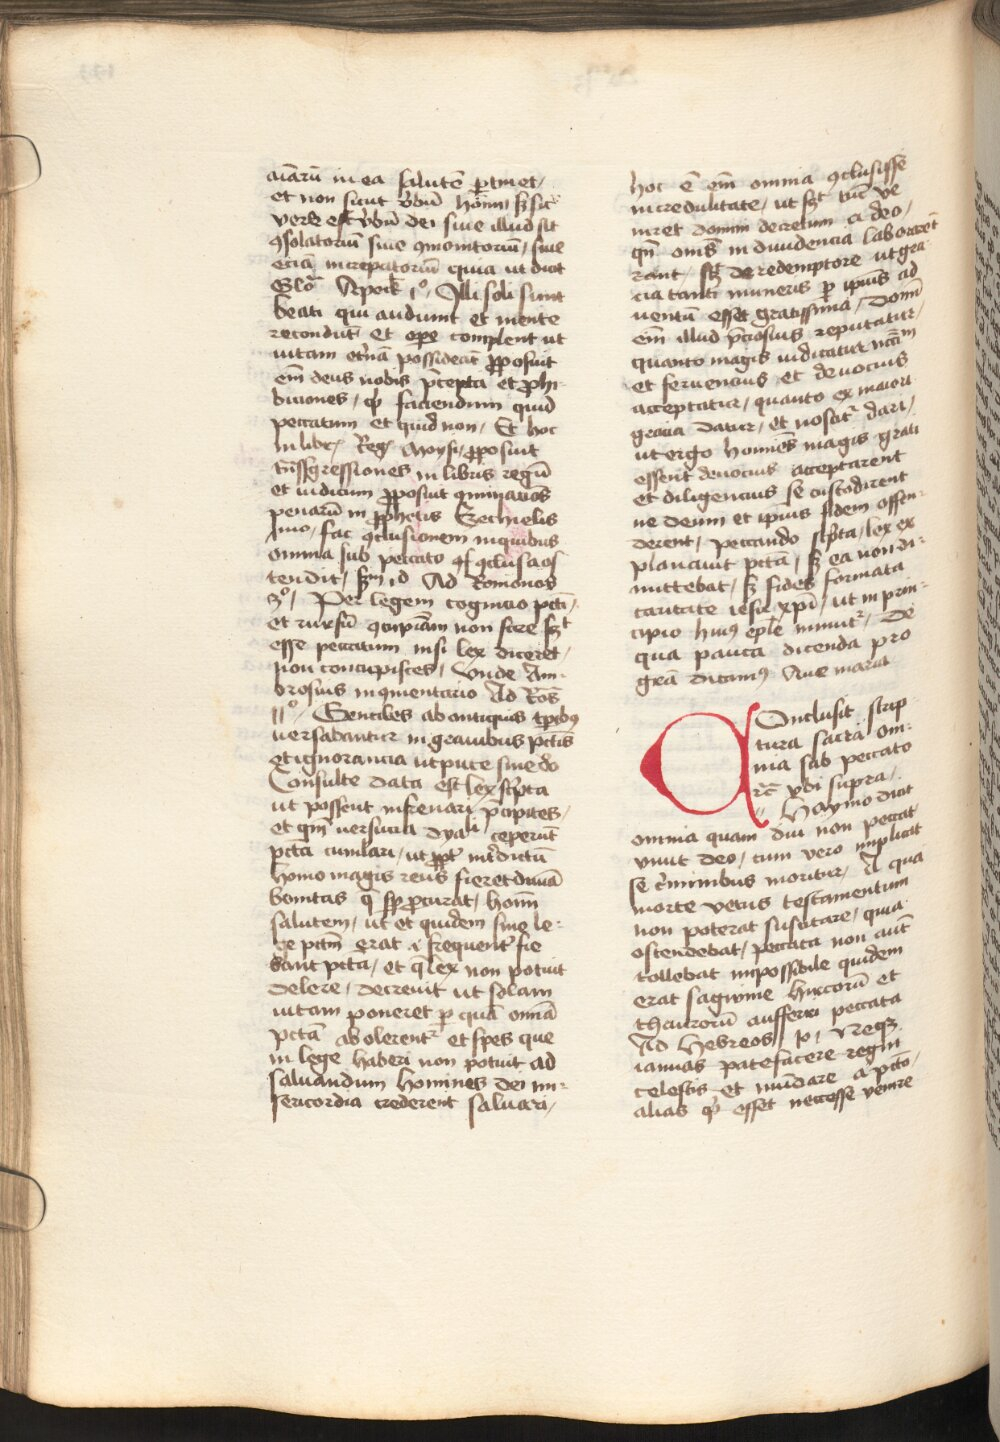 aīarū in ea salutē ꝑtinet /
et non sicut v̄bū hoīm / sꝫ sic
vere est v̄bū dei siue illud sit
ꝯsolatoriū siue ꝯmonitoriū / siue
eciā increpatoriū quia ut dicit
Glo͛ Apok̄ 1º / Illi soli sunt
beati qui audiunt et mente
recondūt et oꝑe complent ut
uitam etnā possideāt ꝓposuit
em̄ deus nobis p̄cepta et ꝓhi-
biciones / ꝙ faciendum quid
peccatum et quid non / Et hoc
in libr̄ Moysi / ꝓposuit
tn̄sgressiones in libris regū
et iudicum ꝓposuit ꝯminatiōs
penarū in ꝓphetis Ezechielis
fac ꝯclusionem in quibus
omnia sub peccato ꝯclusa os
tendit / Ad Romanos
3º / Per legem cognicio pcti /
et rursū ꝯcupiāam non scire
esse peccatum nisi lex diceret /
non concupisces / Unde Am-
brosius in ꝯmentario Ad Roꝫ
Gentiles ab antiquis tp̄ibꝰ
uersabantur in grauibus pctis
et ignorancia utpute siue do
Consulte data est lex scp̄ta
ut possent infrenari p̄cipites /
et qm̄ uersucia dyabͥ ceperūt
pcta cumlari / ut ꝓpt̄ int̄dictū
homo magis reus fieret diuīa
bonitas q̄ sp̄ ꝓcurat / hoīm
salutem / ut et quidem sine le-
ge pctm̄ erat frequent̄ fie
bant pcta / et q̄ lex non potuit
delere / decreuit ut solam
uitam poneret ꝑ quā omīa
pctā abolerentᷣ et spes que
in lege haberi non potuit ad
saluandum homines dei mi-
sericordia crederent saluari /
hoc ē em̄ omnia ꝯclusisse
incredulitate / ut tūc ve
niret domini decretum a deo /
qn̄ om̄s in diuidencia laborarēt
rant / sꝫ de redemptore ut gra
cia tanti muneris ꝑ ipius ad
uentū esset gratissima / Donū
em̄ illud p̄ciosius reputatur /
quanto magis iudicatur
et feruencius et deuocius
acceptatur / quanto ex maiori
gracia datur / et noscit̄ dari /
ut ergo homines magis grati
essent deuocius acceptarent
et diligencius se custodirent
ne deum et ipius fidem offen-
derent / peccando sc̄pta / lex ex
planauit pctā / sꝫ ea non di-
mittebat / sꝫ fides formata
caritate iesu xp̄i / ut in prin-
cipio huiꝰ eple innuit̄ / De
qua pauca dicenda pro
grā dicamꝰ Aue maria
Conclusit scrip
tura sacra om-
nia sub peccato
rc̄ vbi supra /
Haymo dicit
omnia quam diu non peccat
viuit deo / cum vero implicat
se c̄minibus moritur / A qua
morte vetus testamentum
non poterat suscitare / quia
ostendebat / peccata non aut̄
tollebat impossibile quidem
erat sagwine hircorū et
thaurorū aufferri peccata
Ad Hebreos / 10 / Neqꝫ
ianuas patefacere regni
celestis et mūdare a pctō /
alias ꝙ esset necesse venire